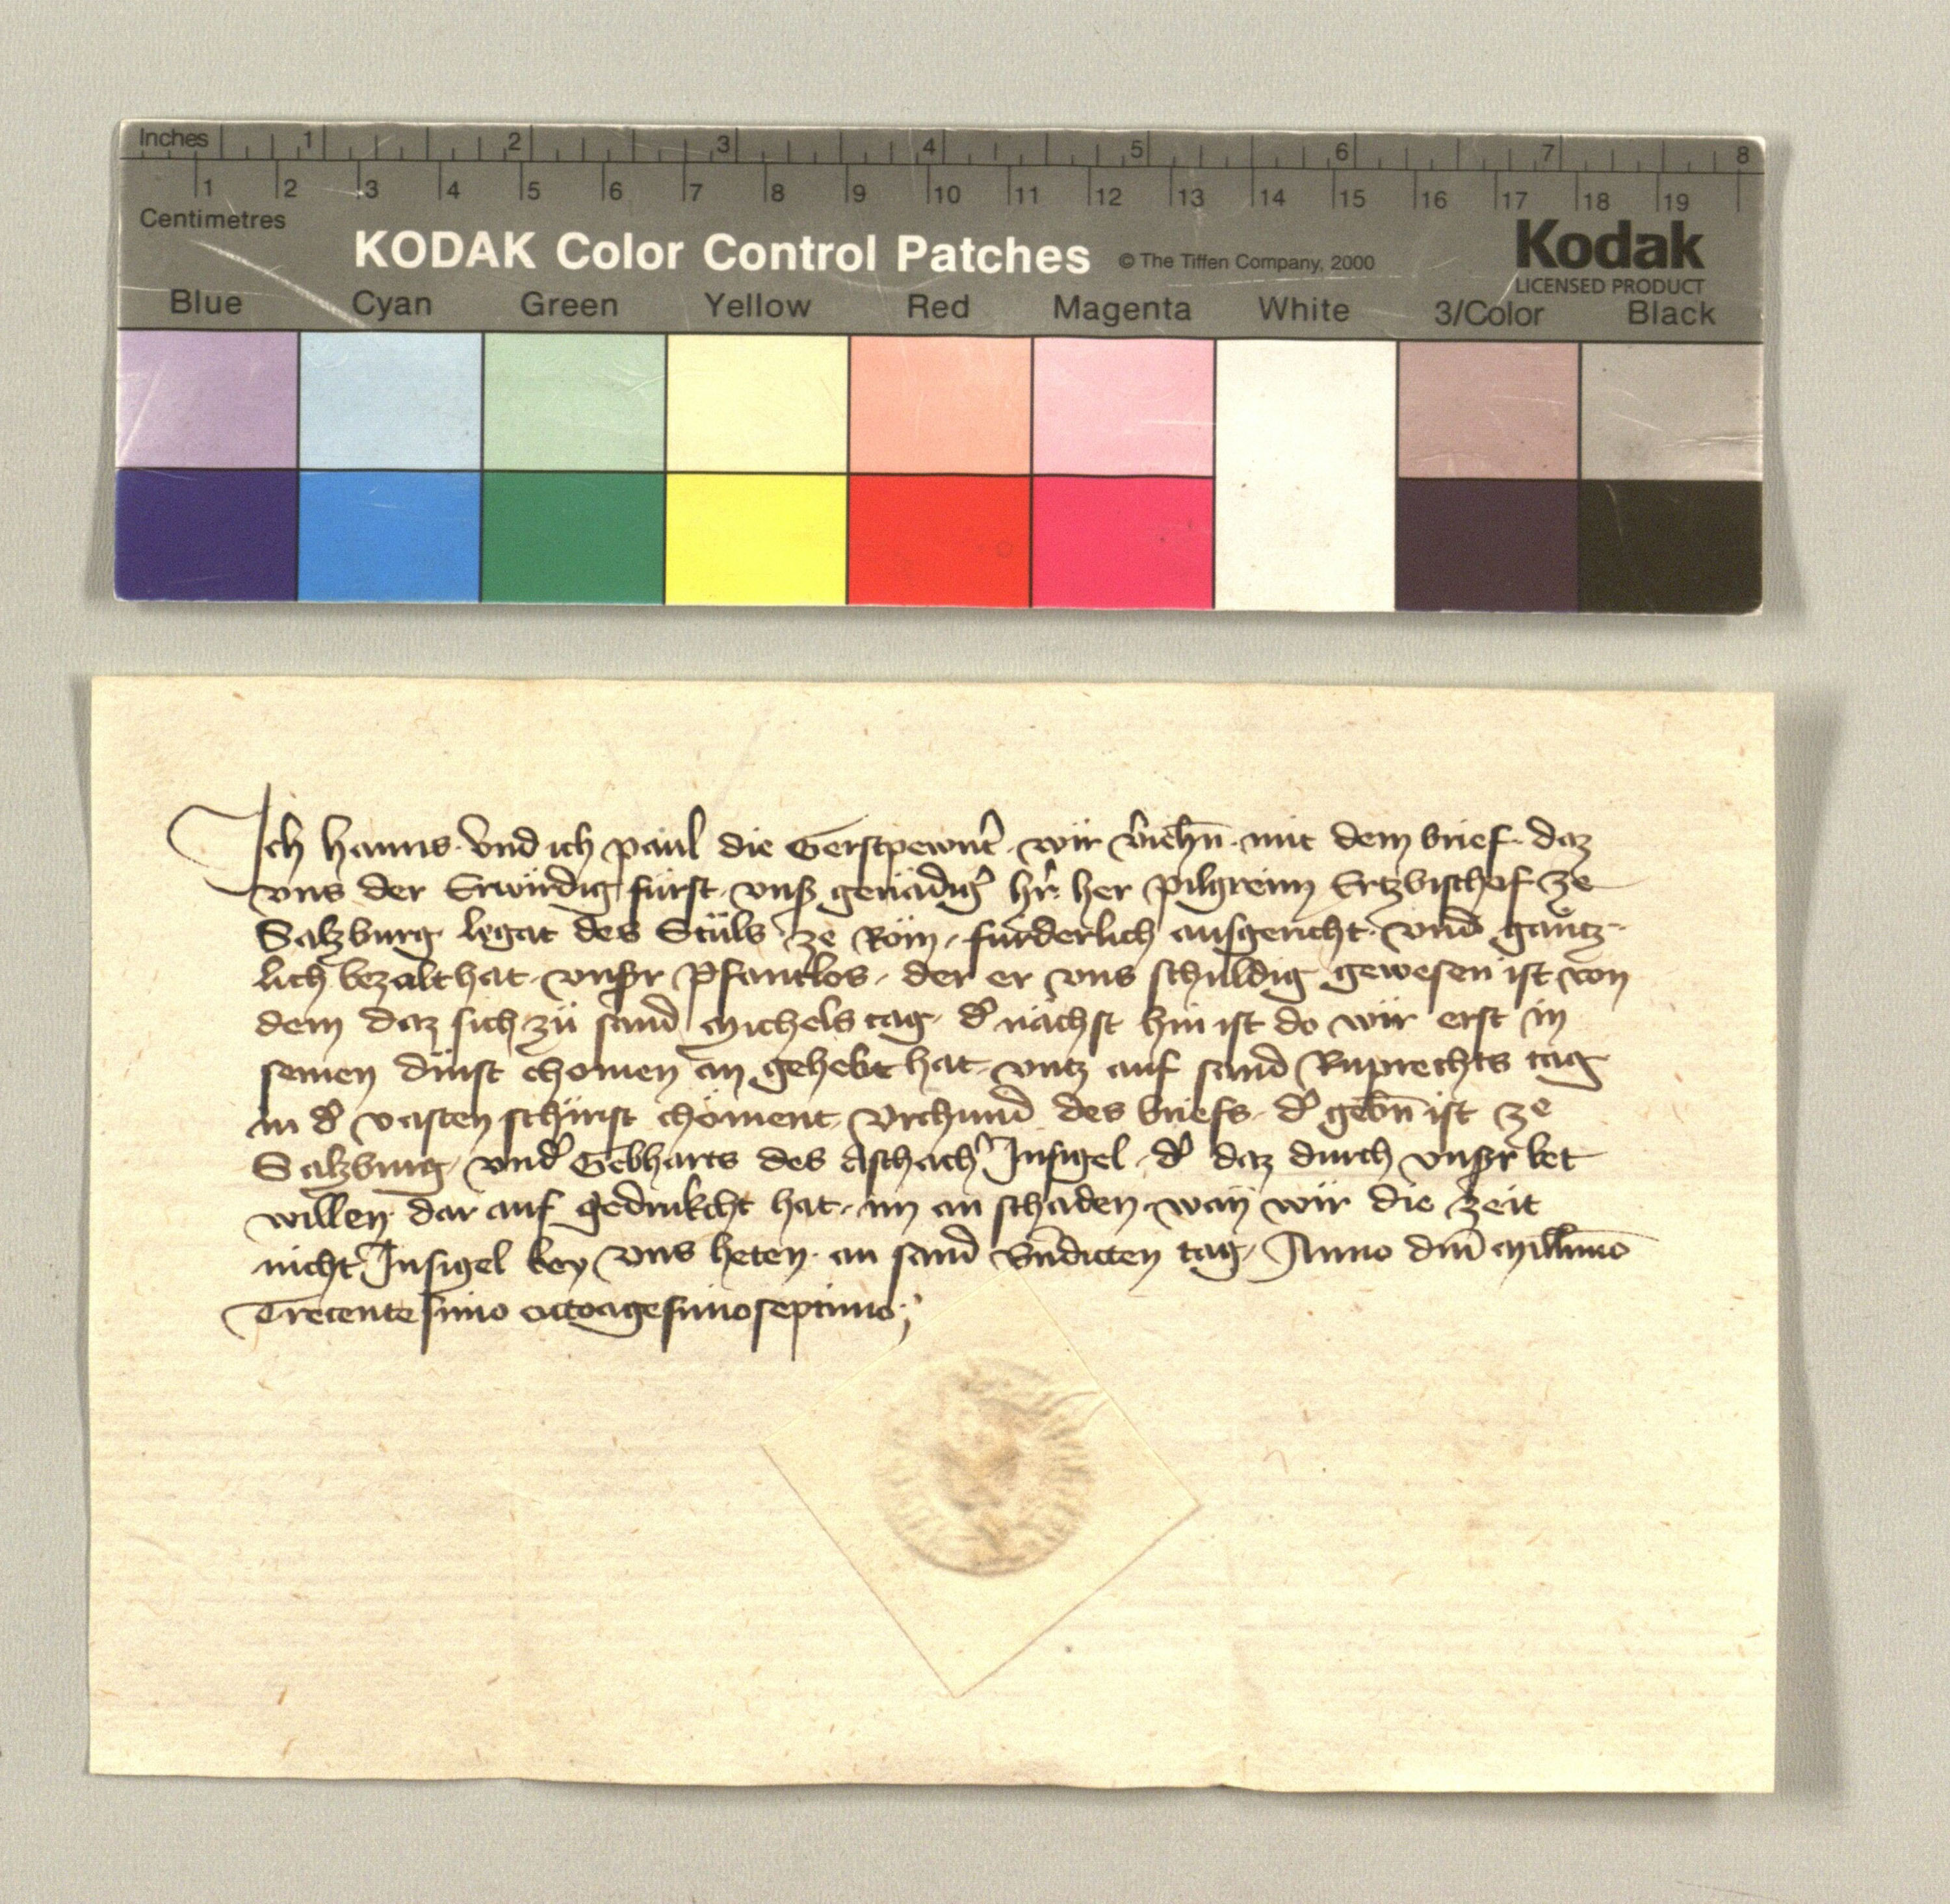 Inches 1 2 3 4 5 6 7 8
1 2 3 4 5 6 7 8 9 10 11 12 13 14 15 16 17 18 19
Centimetres
KODAK Color Control Patches © The Tiffen Company, 2000 Kodak
LICENSED PRODUCT
Blue Cyan Green Yellow Red Magenta White 3/Color Black
Ich Hanns vnd ich paul die Gerstpewnt̉ wir v̉iehn̄ mit dem brief daz
vns der Erwirdig fürst vnß genädig̉ hr̉ her pilgreim Ertzbischof ze
Salzburg legat des Stüls ze Röm fürderlich ausgericht vnd gäntz-
lich bezalt hat vnßr pfantlos der er vns schuldig gewesen ist von
dem daz sich zü sand Michels tag d̉ nächst hin ist do wir erst in
seinen dinst chomen an gehebt hat vntz auf sand Ruprechts tag
in d̉ vasten schirist chöment Vrchund des briefs d̉ gebn̄ ist ze
Salzburg vnd̉ Gebharts des Aschach̉ Insigel d̉ daz durch vnßr bet
willen dar auf gedrukcht hat im an schaden wan wir die zeit
nicht Insigel bey vns heten an sand Bn̄dicten tag Anno dm̄ Millimō
Trecentesimo octoagesimoseptimo